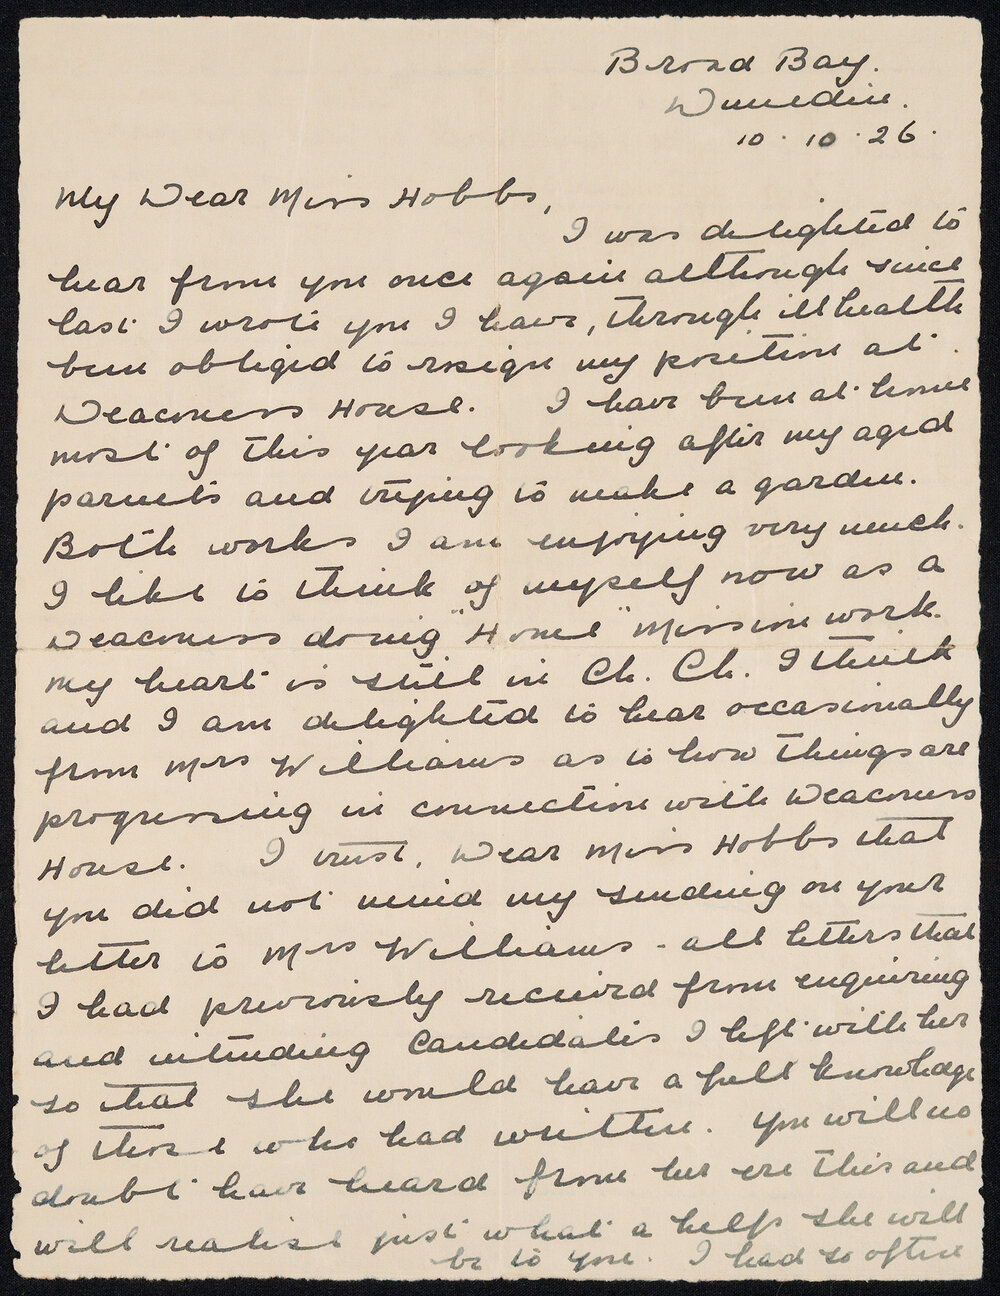 Broad Bay.
Dunedin.
10.10.26.
My Dear Miss Hobbs,
I was delighted to
hear from you once again although since
last I wrote you I have, through ill health
been obliged to resign my position at
Deaconess House. I have been at home
most of this year looking after my aged
parents and trying to make a garden.
Both works I am enjoying very much.
I like to think of myself now as a
Deaconess doing "Home" Mission work.
My heart is still in Ch. Ch. I think
and I am delighted to hear occasionally
from Mrs Williams as to how things are
progressing in connection with Deaconess
House. I trust, Dear Miss Hobbs that
you did not mind my sending on your
letter to Mrs Williams - all letters that
I had previously received from enquiring
and intending Candidates I left with her
so that she would have a full knowledge
of those who had written. You will no
doubt have heard from her ere this and
will realise just what a help she will
be to you. I had so often